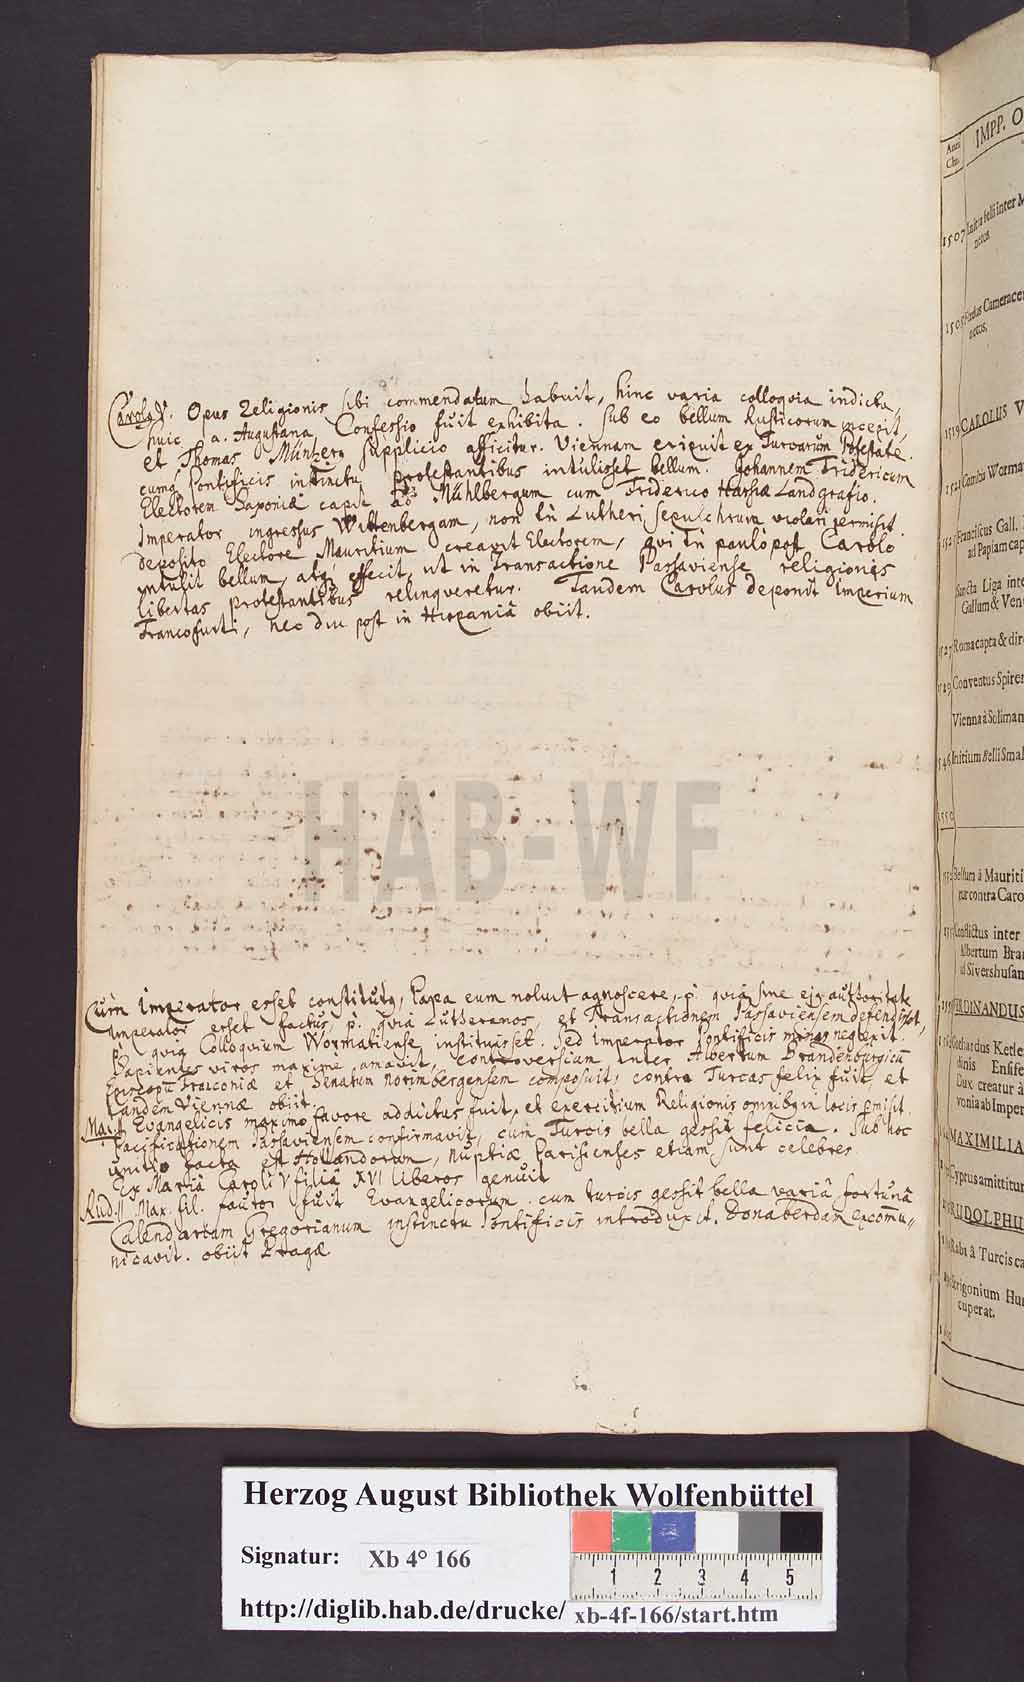 Carolus V. Opus Religionis sibi commendatum habuit, hinc varia colloquia indicta,
huic a. Augustana Confessio fuit exhibita. sub eo bellum Rusticorum incepit,
et Thomas Münzerg supplicio afficitur. Viennam eripuit ex Turcarum Potestate.
cumq Pontificis instinctu protestantibus intulisset bellum. Johannem Fridericum
Electorem Saxoniæ capit ad Mühlbergum cum Friderico Hassiæ Landgrafio.
Imperator ingressus Wittenbergam, non Lutheri sepulchrum violari permisit.
deposito Electore Mauritium creavit Electorem, qui paulo post Carolo
intulit bellum, atq; effecit, ut in Transactione Passaviense religionis
libertas protestantibus relinqueretur. Tandem Carolus deponit Imperium
Francofurti, nec diu post in Hispaniâ obiit.
Cum Imperator esset constitutq, Papa eum noluit agnoscere, p. quia sine ejq authoritate
Imperator esset factus, p. quia Lutheranos, et Transactionem Passaviensem defendisset,
p. quia Colloquium Wormatiense instituisset. Sed Imperator Pontificis minas neglexit.
Sapientes viros maxime amavit, controversiam inter Albertum Brandenburgicū
Episcopū Franconiæ et Senatum Norimbergensem composuit, contra Turcas felix fuit, et
tandem Viennæ obiit
Max. II Evangelicis maximo favore addictus fuit, et exercitium Religionis omnibq in locis pmisit.
Pacificationem Passaviensem confirmavit, cum Turcis bella gessit felicia. Sub hoc
unitio facta est Hollandorum, nuptiæ Parisienses etiam sunt celebres.
Ex Mariâ Caroli V filiâ XVI liberos genuit
Rud. II Max. fil. fautor fuit Evangelicorum. cum turcis gessit bella variâ fortunâ
Calendarium Gregorianum instinctu Pontificis introduxit. Donaberdam excomu„
nicavit. obiit Pragæ
Anni
Chr.
IMPP. O
1507 Initia belli inter M
netos
Fœdus Camerace
netos,
1519 CAROLUS V
1521 Comitia Worma
Franciscus Gall.
ad Papiam cap
Sancta Liga inte
Gallum & Ven
1527 Roma capta & dir
1529 Conventus Spiren
Vienna à Soliman
1546 Initium Belli Smal
Bellum à Mauriti
par contra Caro
Conflictus inter
Albertum Bra
ad Sivershusan
FERDINANDUS
Gothardus Ketle
dinis Ensife
Dux creatur à
vonia ab Imper
MAXIMILIA
Cyprus amittitur
RUDOLPHU
Raba à Turcis ca
Strigonium Hun
cuperat.
HAB-WF
Herzog August Bibliothek Wolfenbüttel
Signatur: Xb 4° 166
1 2 3 4 5
http://diglib.hab.de/drucke/ xb-4f-166/start.htm